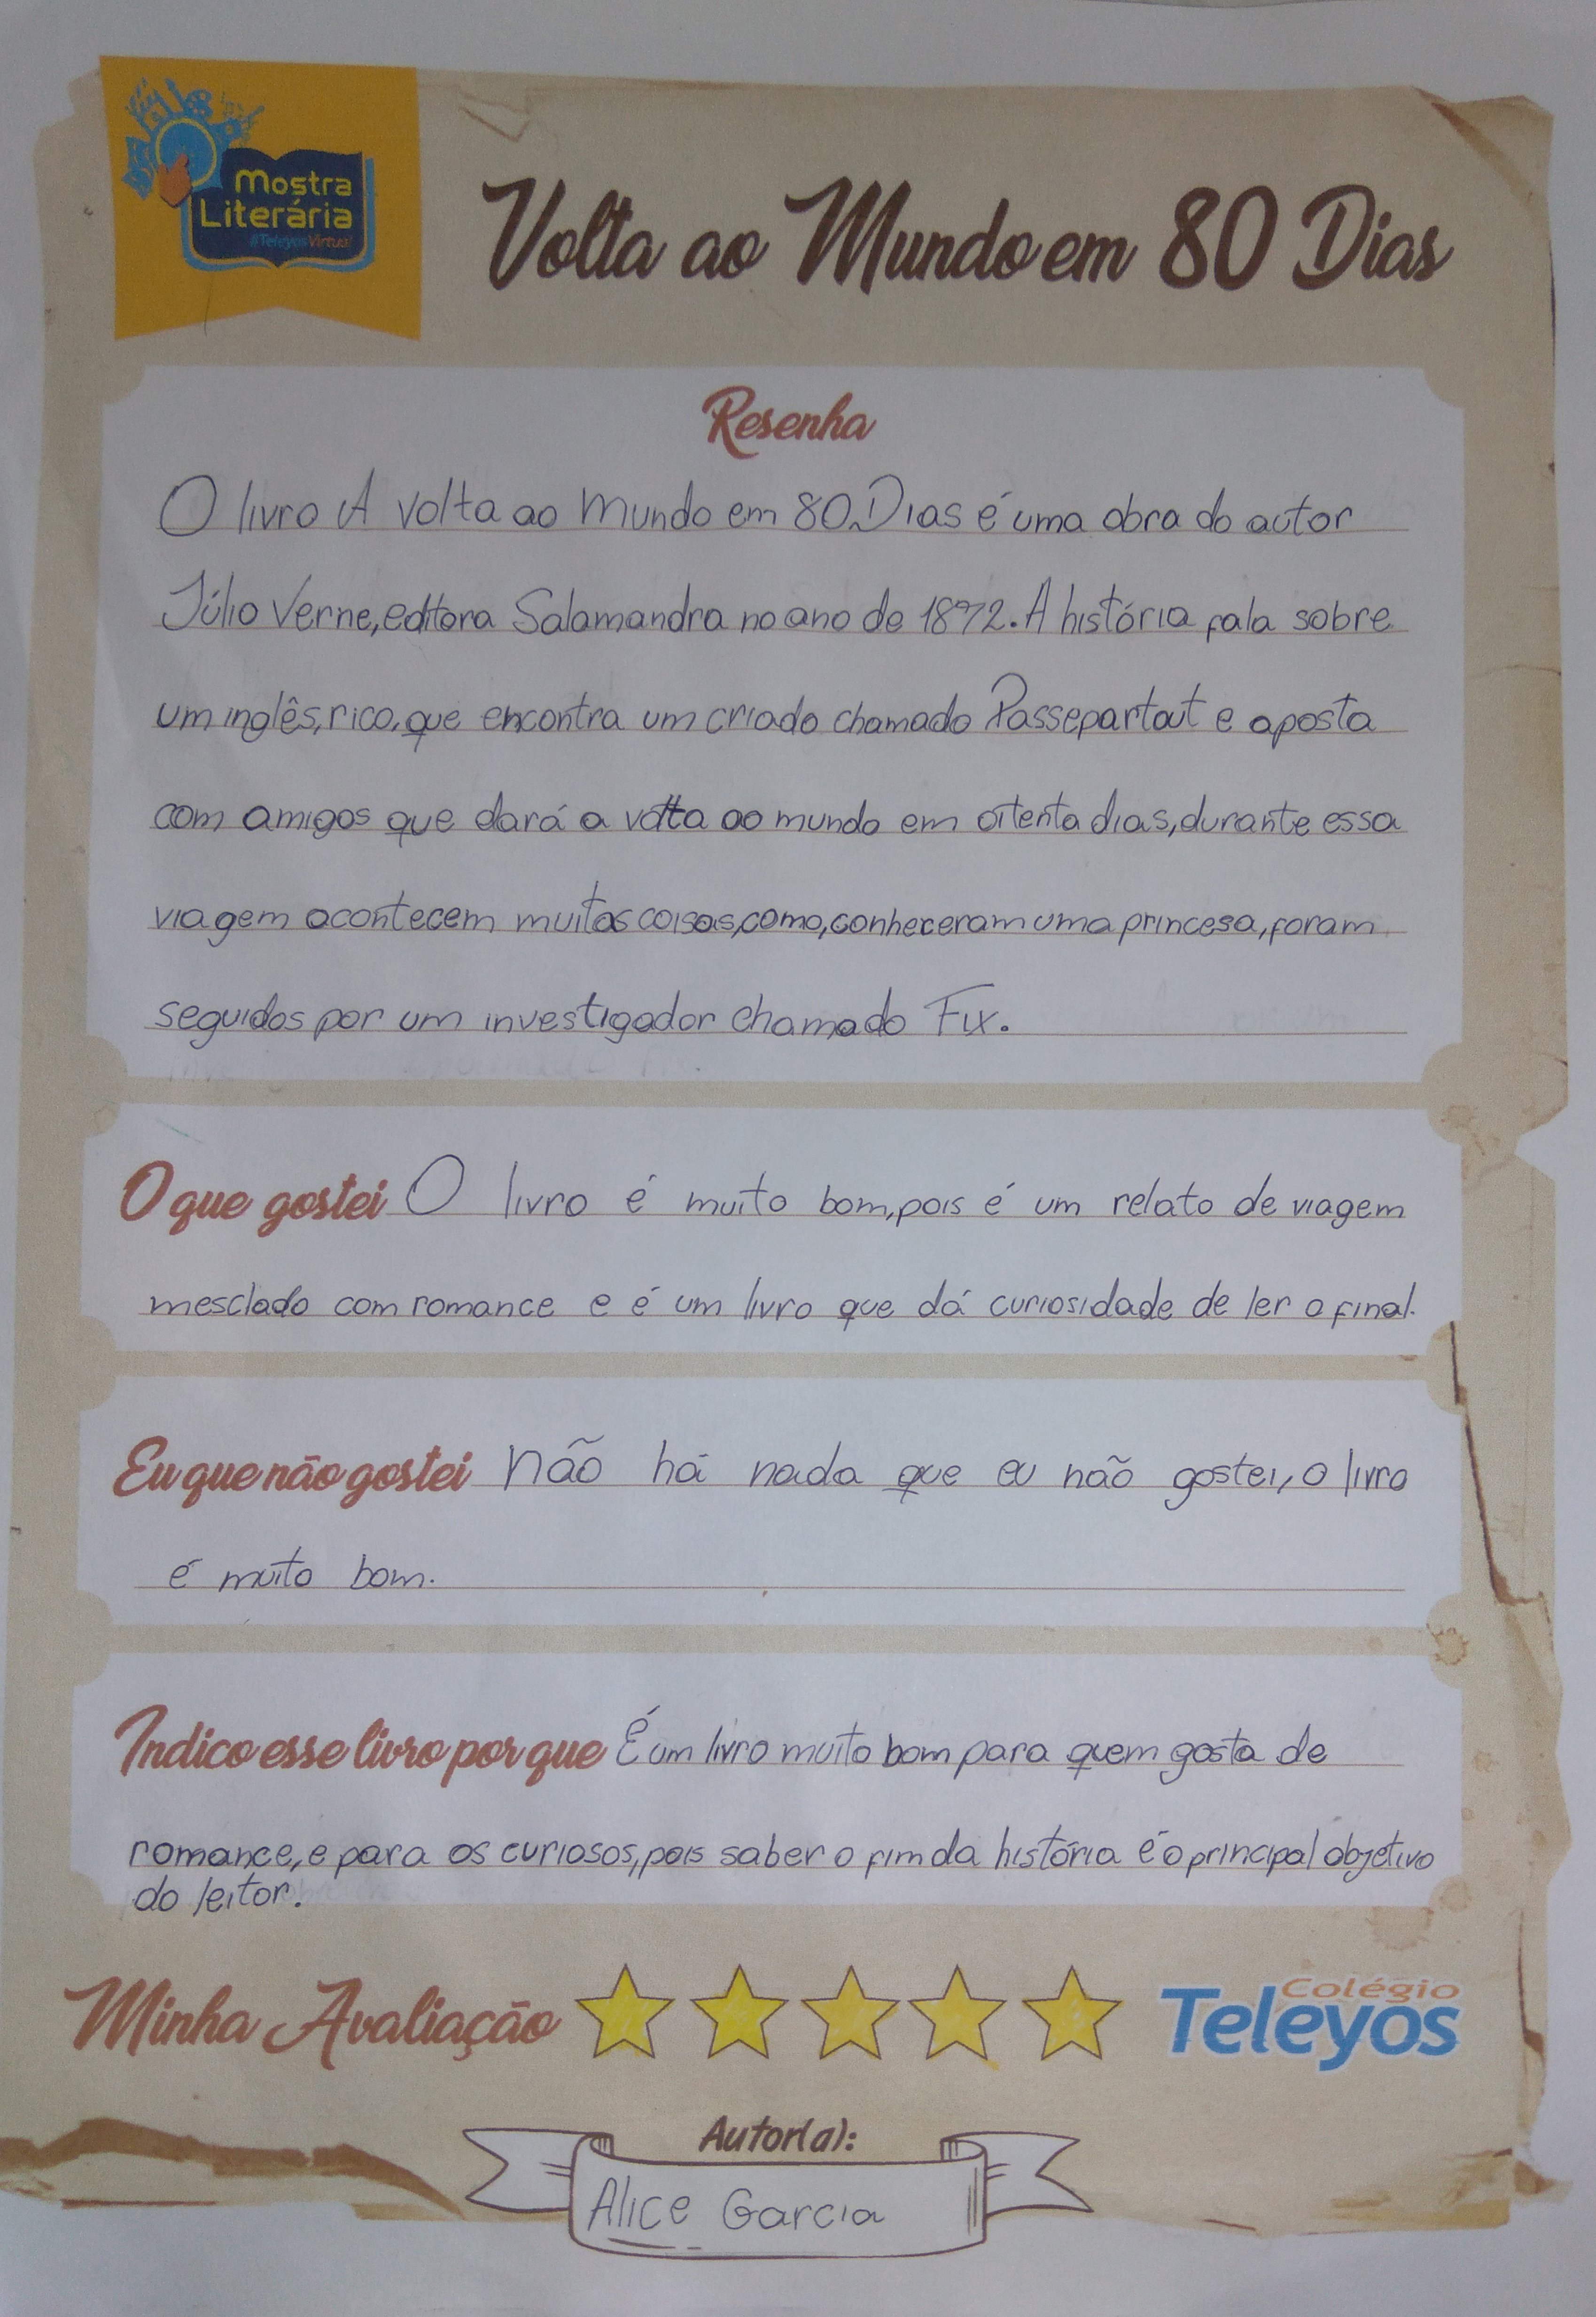 Mostra
Literária
#TeleyosVirtual
Volta ao Mundo em 80 Dias
Resenha
O livro A volta ao mundo em 80 Dias é uma obra do autor
Júlio Verne, editora Salamandra no ano de 1872. A história fala sobre
um inglês, rico, que encontra um criado chamado Passepartout e aposta
com amigos que dará a volta ao mundo em oitenta dias, durante essa
viagem acontecem muitas coisas, como, conheceram uma princesa, foram
seguidos por um investigador chamado Fix.
O que gostei O livro é muito bom, pois é um relato de viagem
mesclado com romance e é um livro que dá curiosidade de ler o final.
Eu que não gostei não há nada que eu não gostei, o livro
é muito bom.
Indico esse livro por que É um livro muito bom para quem gosta de
romance, e para os curiosos, pois saber o fim da história é o principal objetivo
do leitor.
Minha Avaliação
Colégio
Teleyos
Autor(a):
Alice Garcia